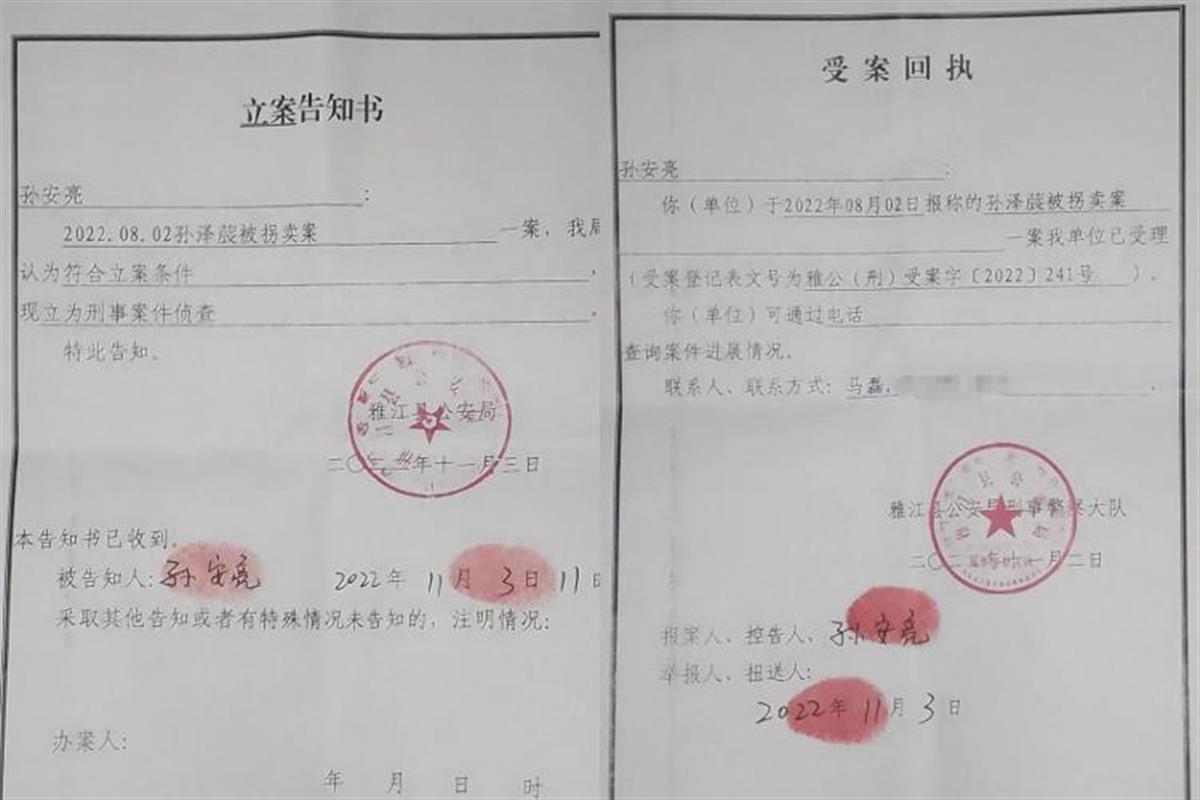 立案告知书
孙安亮：
2022.08.02孙泽蕟被拐卖案一案，我局
认为符合立案条件，
现立为刑事案件侦查。
特此告知。
雅江县公安局
二〇二二年十一月三日
本告知书已收到。
被告知人：孙安亮 2022年 11月 3日 11时
采取其他告知或者有特殊情况未告知的，注明情况：
办案人：
年 月 日 时
受案回执
孙安亮：
你（单位）于2022年08月02日报称的孙泽蕟被拐卖案
一案我单位已受理
（受案登记表文号为雅公（刑）受案字〔2022〕241号）。
你（单位）可通过电话
查询案件进展情况。
联系人、联系方式：马磊，
雅江县公安局刑事警察大队
二〇二二年十一月二日
报案人、控告人、孙安亮
举报人、扭送人：
2022年 11月 3日